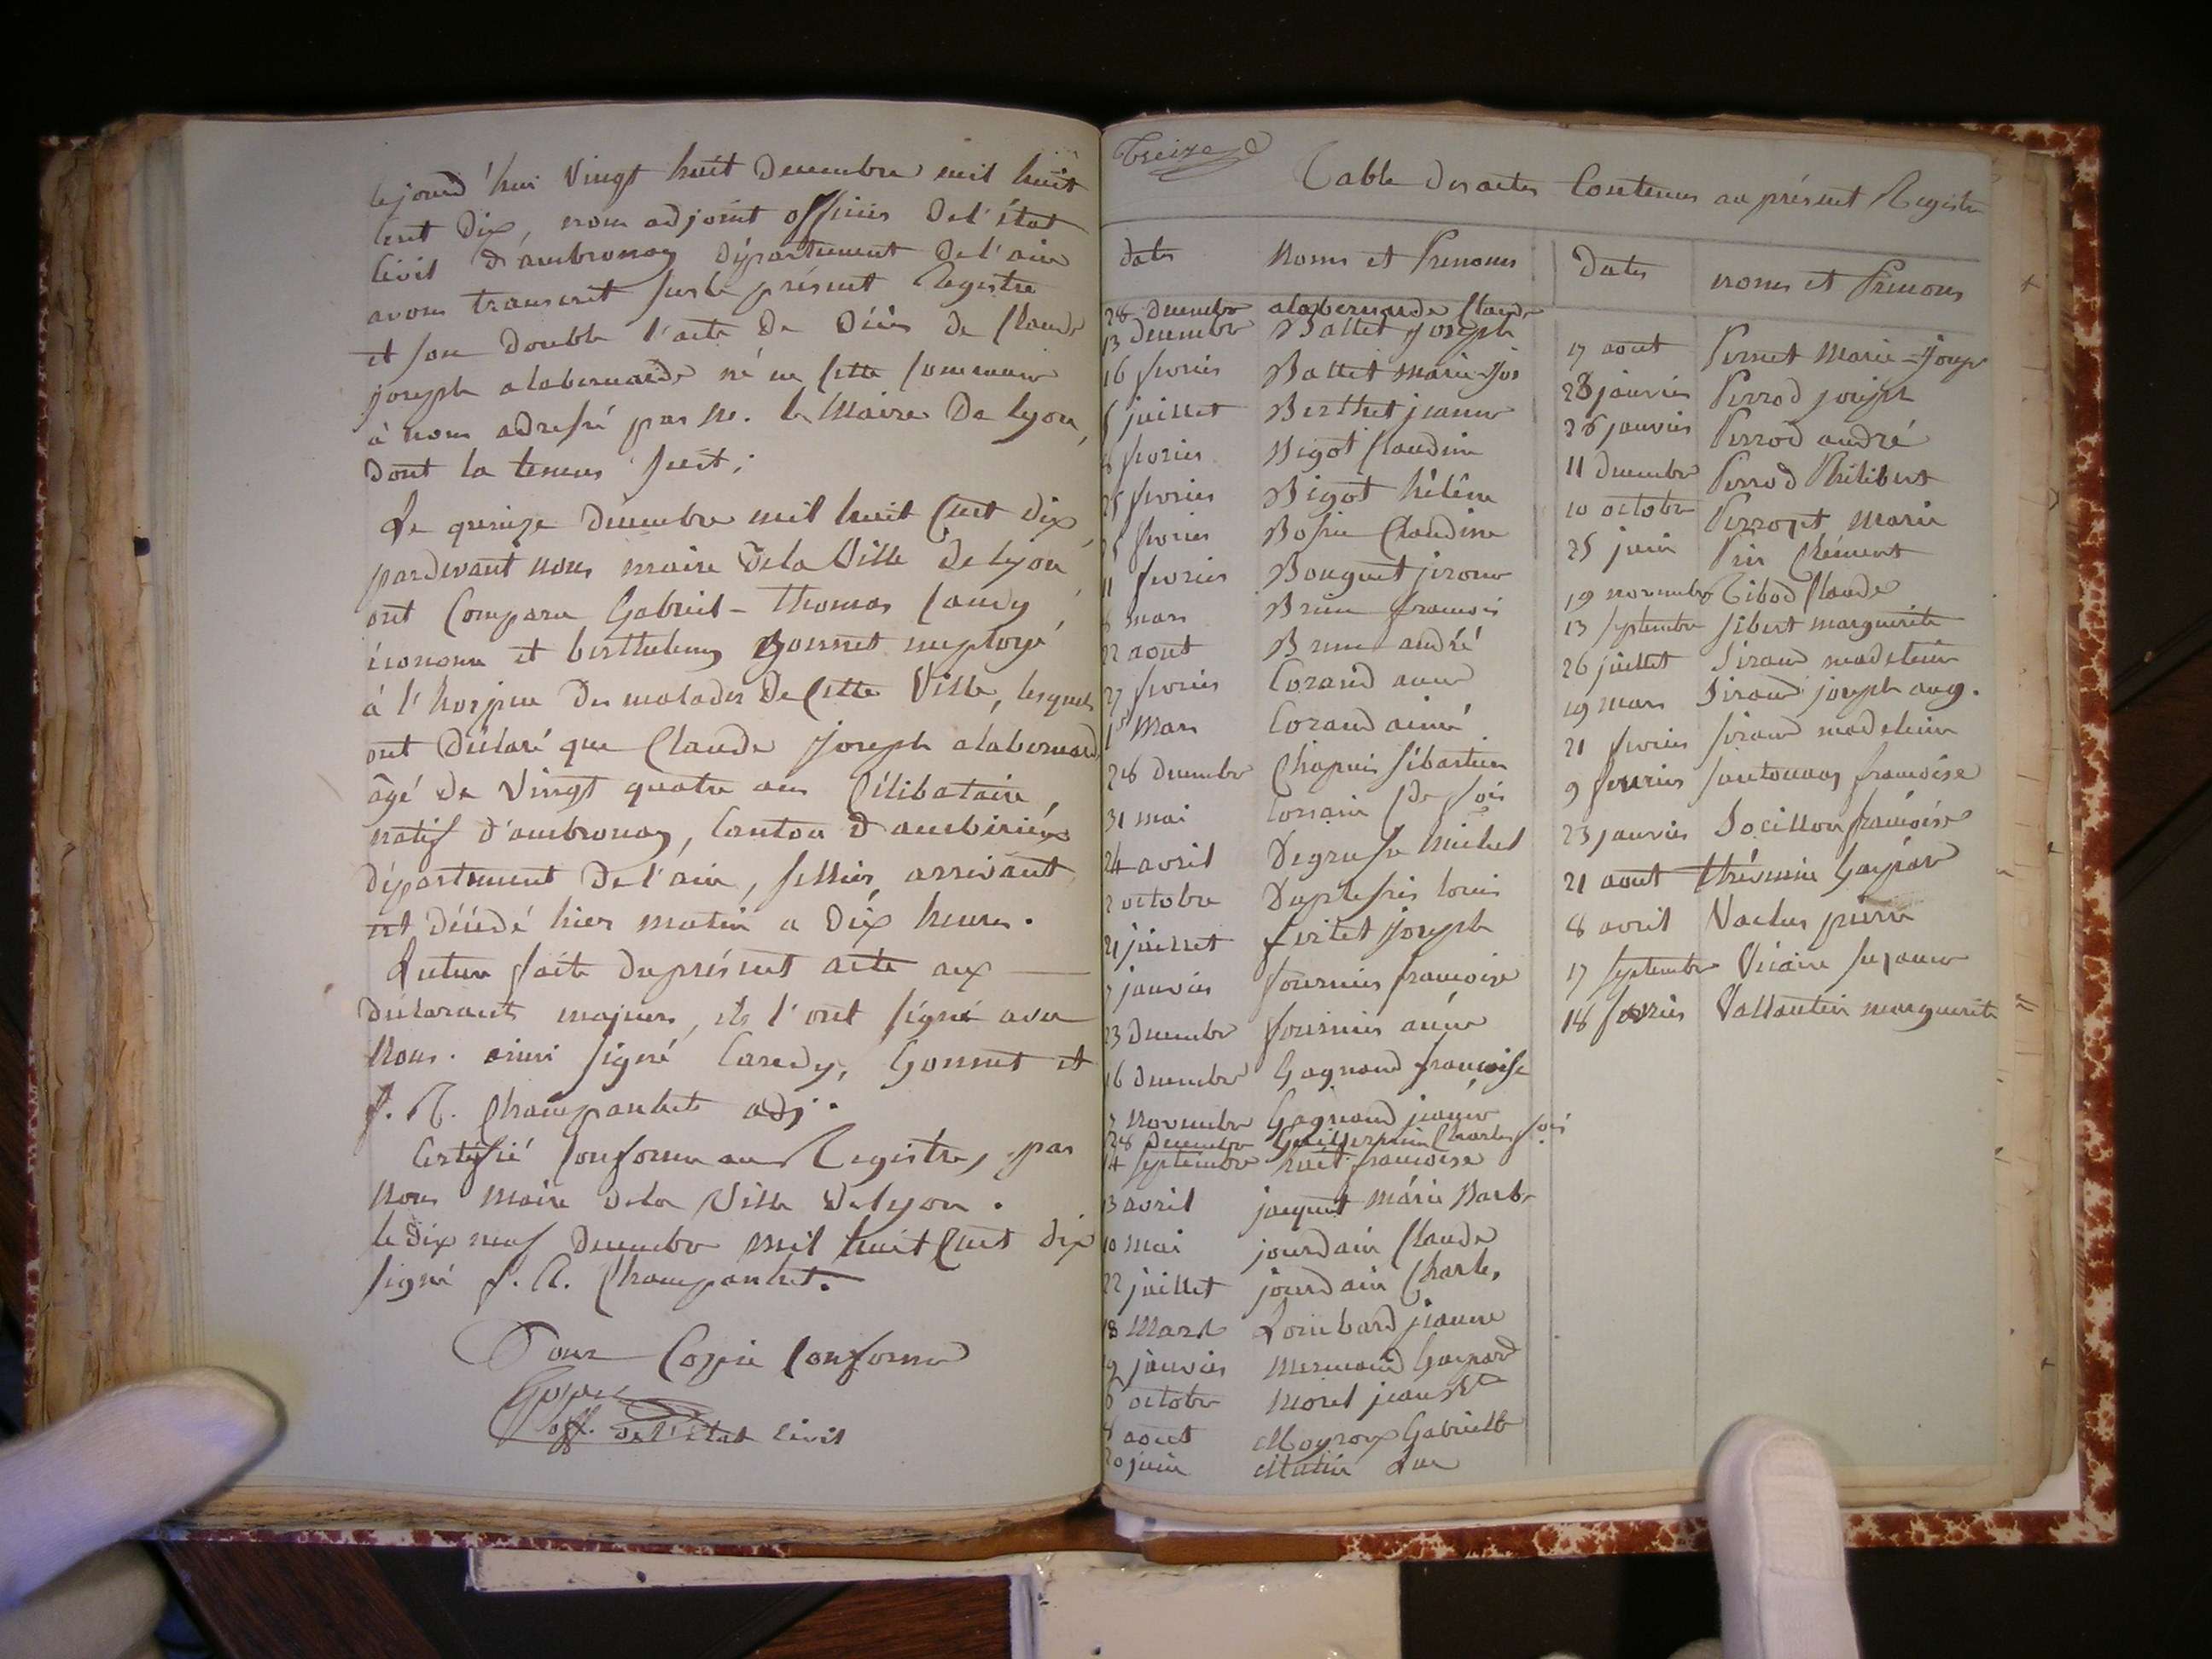 cejourd'hui vingt huit decembre mil huit
cent dix, nous adjoint officier de l'état
civil d'ambronay département de l'ain
avons transcrit sur le présent Registre
et son double l'acte de décès de Claude
joseph alabernarde né en cette commune
à nous adressé par Mr. le Maire de lyon,
dont la teneur suit;
Le quinze décembre mil huit cent dix
pardevant nous maire de la Ville de lyon
ont comparu Gabriel-thomas
économe et berthelemy Gonnet employé
à l'hospice des malades de cette Ville, lesquels
ont déclaré que Claude joseph alabernarde
âgé de vingt quatre ans célibataire,
natif d'ambronay, canton d'ambérieux
département de l'ain, sellier, arrivant
est décédé hier matin a dix heures.
Lecture faite du présent acte aux
déclarants majeurs, ils l'ont signé avec
Nous. ainsi signé Gonnet et
Champanhet adj.
Certifié conforme au Registre, par
Nous Maire de la Ville de lyon.
le dix neuf decembre mil huit cent dix
signé Champanhet.
Pour Copie conforme
off. de l'état civil
treize
Table des actes contenus au présent Registre
dates Noms et Prenoms
28 decembre alabernarde Claude
13 decembre Ballet joseph
16 fevrier Ballet marie-jos
juillet Berthet jeanne
8 fevrier Bigot Claudine
25 fevrier Bigot hélène
fevrier Bossu Claudine
11 fevrier Bouguet jerome
mars Brun francois
22 aout Brun andré
27 fevrier Corand anne
1er Mars Corand aimé
26 decembre Chapuis sébastien
31 mai
24 avril Degrusse michel
2 octobre Duplessis louis
21 juillet fertet joseph
janvier fournier francoise
23 decembre fournier anne
16 decembre Gagnand françoise
novembre Gagnand jeanne
28 decembre Guillermin Charles fois
14 septembre huit francoise
13 avril jacquet marie Barbe
10 mai jourdain Claude
22 juillet jourdain Charles
18 Mars Lombard jeanne
9 janvier mermand Gaspard
6 octobre Morel jean Bte
8 aout Moyroux Gabrielle
20 juin Mutin Luc
Dates noms et Prenoms
17 aout Pernet Marie-joseph
28 janvier Perrod joseph
26 janvier Perrod andré
11 decembre Perrod Philibert
10 octobre Perrozet Marie
25 juin Pin Clément
19 novembre Ribod Claude
13 septembre sibert marguerite
26 juillet Sirand madeleine
19 mars Sirand joseph aug.
21 fevrier sirand madeleine
9 fevrier santonnas francoise
23 janvier Socillon francoise
21 aout thévenin Gaspar
8 avril Vachus pierre
17 septembre Vicaire suzanne
18 fevrier Vallantin marguerite